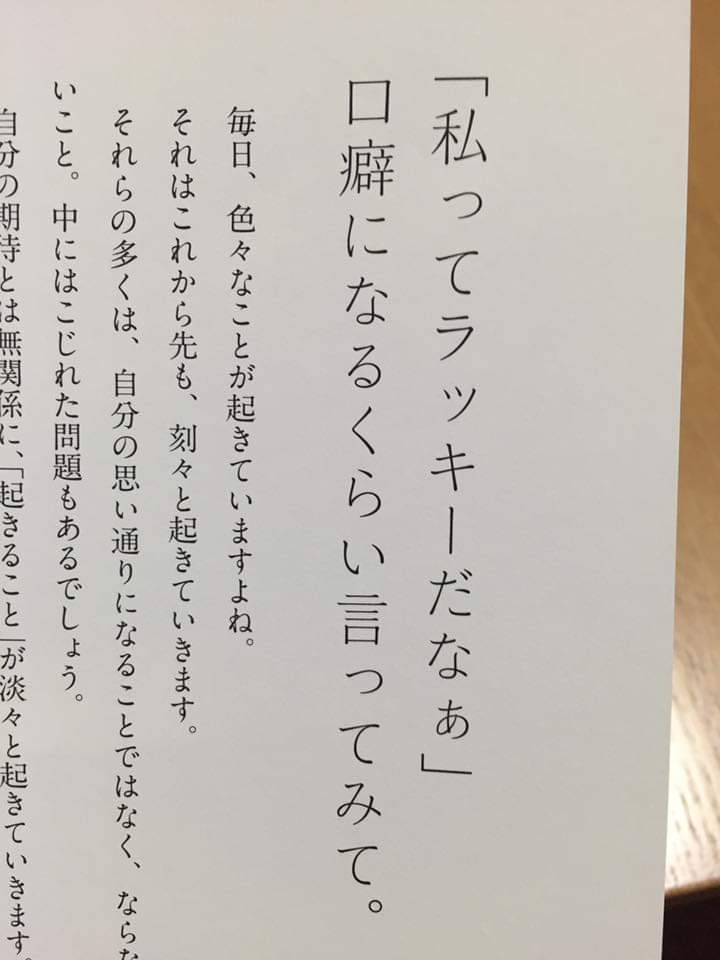 「私ってラッキーだなぁ」
口癖になるくらい言ってみて。
毎日、色々なことが起きていますよね。
それはこれから先も、刻々と起きていきます。
それらの多くは、自分の思い通りになることではなく、ならな
いこと。中にはこじれた問題もあるでしょう。
自分の期待とは無関係に、「起きること」が淡々と起きていきます。